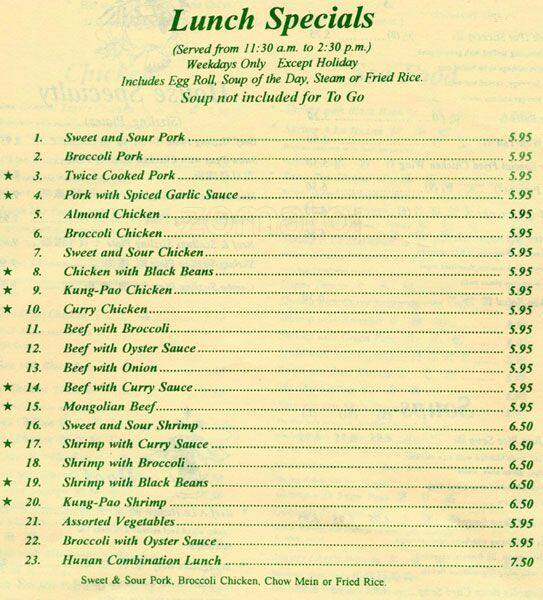 Lunch Specials
(Served from 11:30 a.m. to 2:30 p.m.)
Weekdays Only Except Holiday
Includes Egg Roll, Soup of the Day, Steam or Fried Rice.
Soup not included for To Go
1. Sweet and Sour Pork 5.95
2. Broccoli Pork 5.95
★ 3. Twice Cooked Pork 5.95
★ 4. Pork with Spiced Garlic Sauce 5.95
5. Almond Chicken 5.95
6. Broccoli Chicken 5.95
7. Sweet and Sour Chicken 5.95
★ 8. Chicken with Black Beans 5.95
★ 9. Kung-Pao Chicken 5.95
★ 10. Curry Chicken 5.95
11. Beef with Broccoli 5.95
12. Beef with Oyster Sauce 5.95
13. Beef with Onion 5.95
★ 14. Beef with Curry Sauce 5.95
★ 15. Mongolian Beef 5.95
16. Sweet and Sour Shrimp 6.50
★ 17. Shrimp with Curry Sauce 6.50
18. Shrimp with Broccoli 6.50
★ 19. Shrimp with Black Beans 6.50
★ 20. Kung-Pao Shrimp 6.50
21. Assorted Vegetables 5.95
22. Broccoli with Oyster Sauce 5.95
23. Hunan Combination Lunch 7.50
Sweet & Sour Pork, Broccoli Chicken, Chow Mein or Fried Rice.